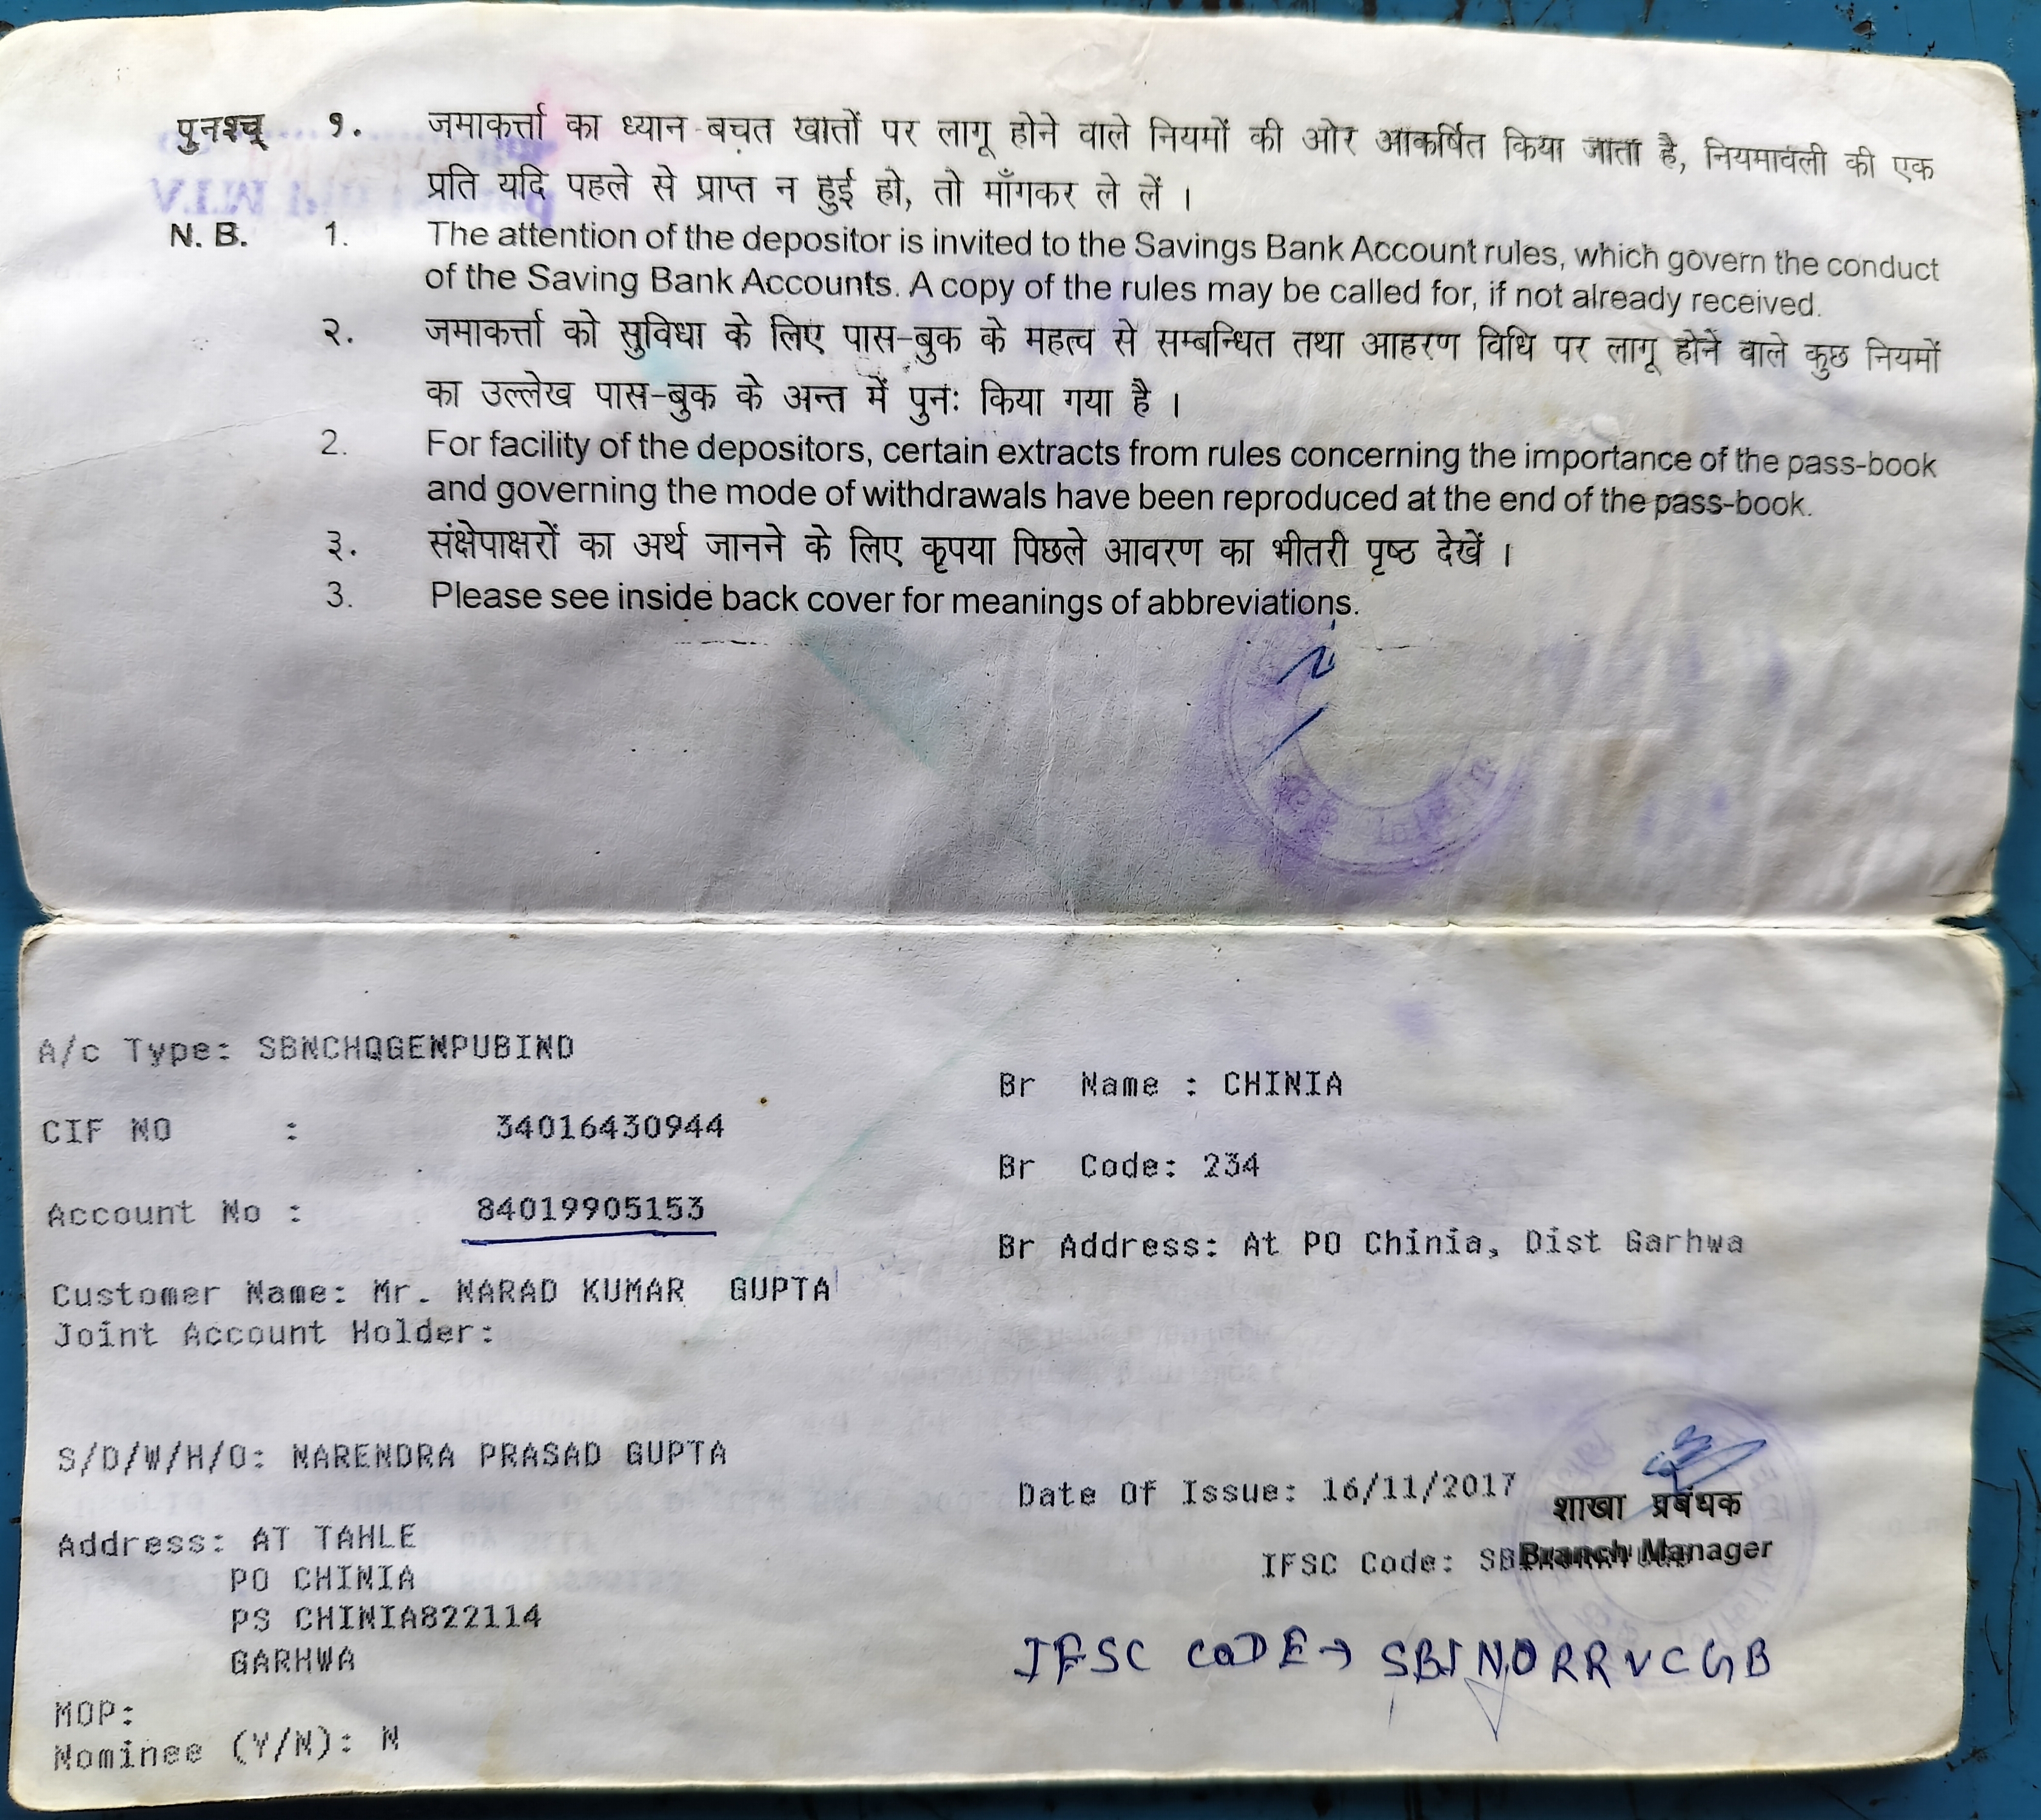 पुनश्च् १. जमाकर्त्ता का ध्यान बचत खातों पर लागू होने वाले नियमों की ओर आकर्षित किया जाता है, नियमावली की एक
प्रति यदि पहले से प्राप्त न हुई हो, तो माँगकर ले लें ।
N. B. 1. The attention of the depositor is invited to the Savings Bank Account rules, which govern the conduct
of the Saving Bank Accounts. A copy of the rules may be called for, if not already received.
२. जमाकर्त्ता को सुविधा के लिए पास-बुक के महत्व से सम्बन्धित तथा आहरण विधि पर लागू होने वाले कुछ नियमों
का उल्लेख पास-बुक के अन्त में पुनः किया गया है ।
2. For facility of the depositors, certain extracts from rules concerning the importance of the pass-book
and governing the mode of withdrawals have been reproduced at the end of the pass-book.
३. संक्षेपाक्षरों का अर्थ जानने के लिए कृपया पिछले आवरण का भीतरी पृष्ठ देखें ।
3. Please see inside back cover for meanings of abbreviations.
A/c Type: SBNCHQGENPUBIND
Br Name : CHINIA
CIF NO : 34016430944
Br Code: 234
Account No : 84019905153
Br Address: At PO Chinia, Dist Garhwa
Customer Name: Mr. NARAD KUMAR GUPTA
Joint Account Holder:
S/D/W/H/O: NARENDRA PRASAD GUPTA
Date Of Issue: 16/11/2017
शाखा प्रबंधक
Branch Manager
Address: AT TAHLE
IFSC Code:
PO CHINIA
PS CHINIA822114
GARHWA
IFSC CODE → SBIN0RRVCGB
MOP:
Nominee (Y/N): N